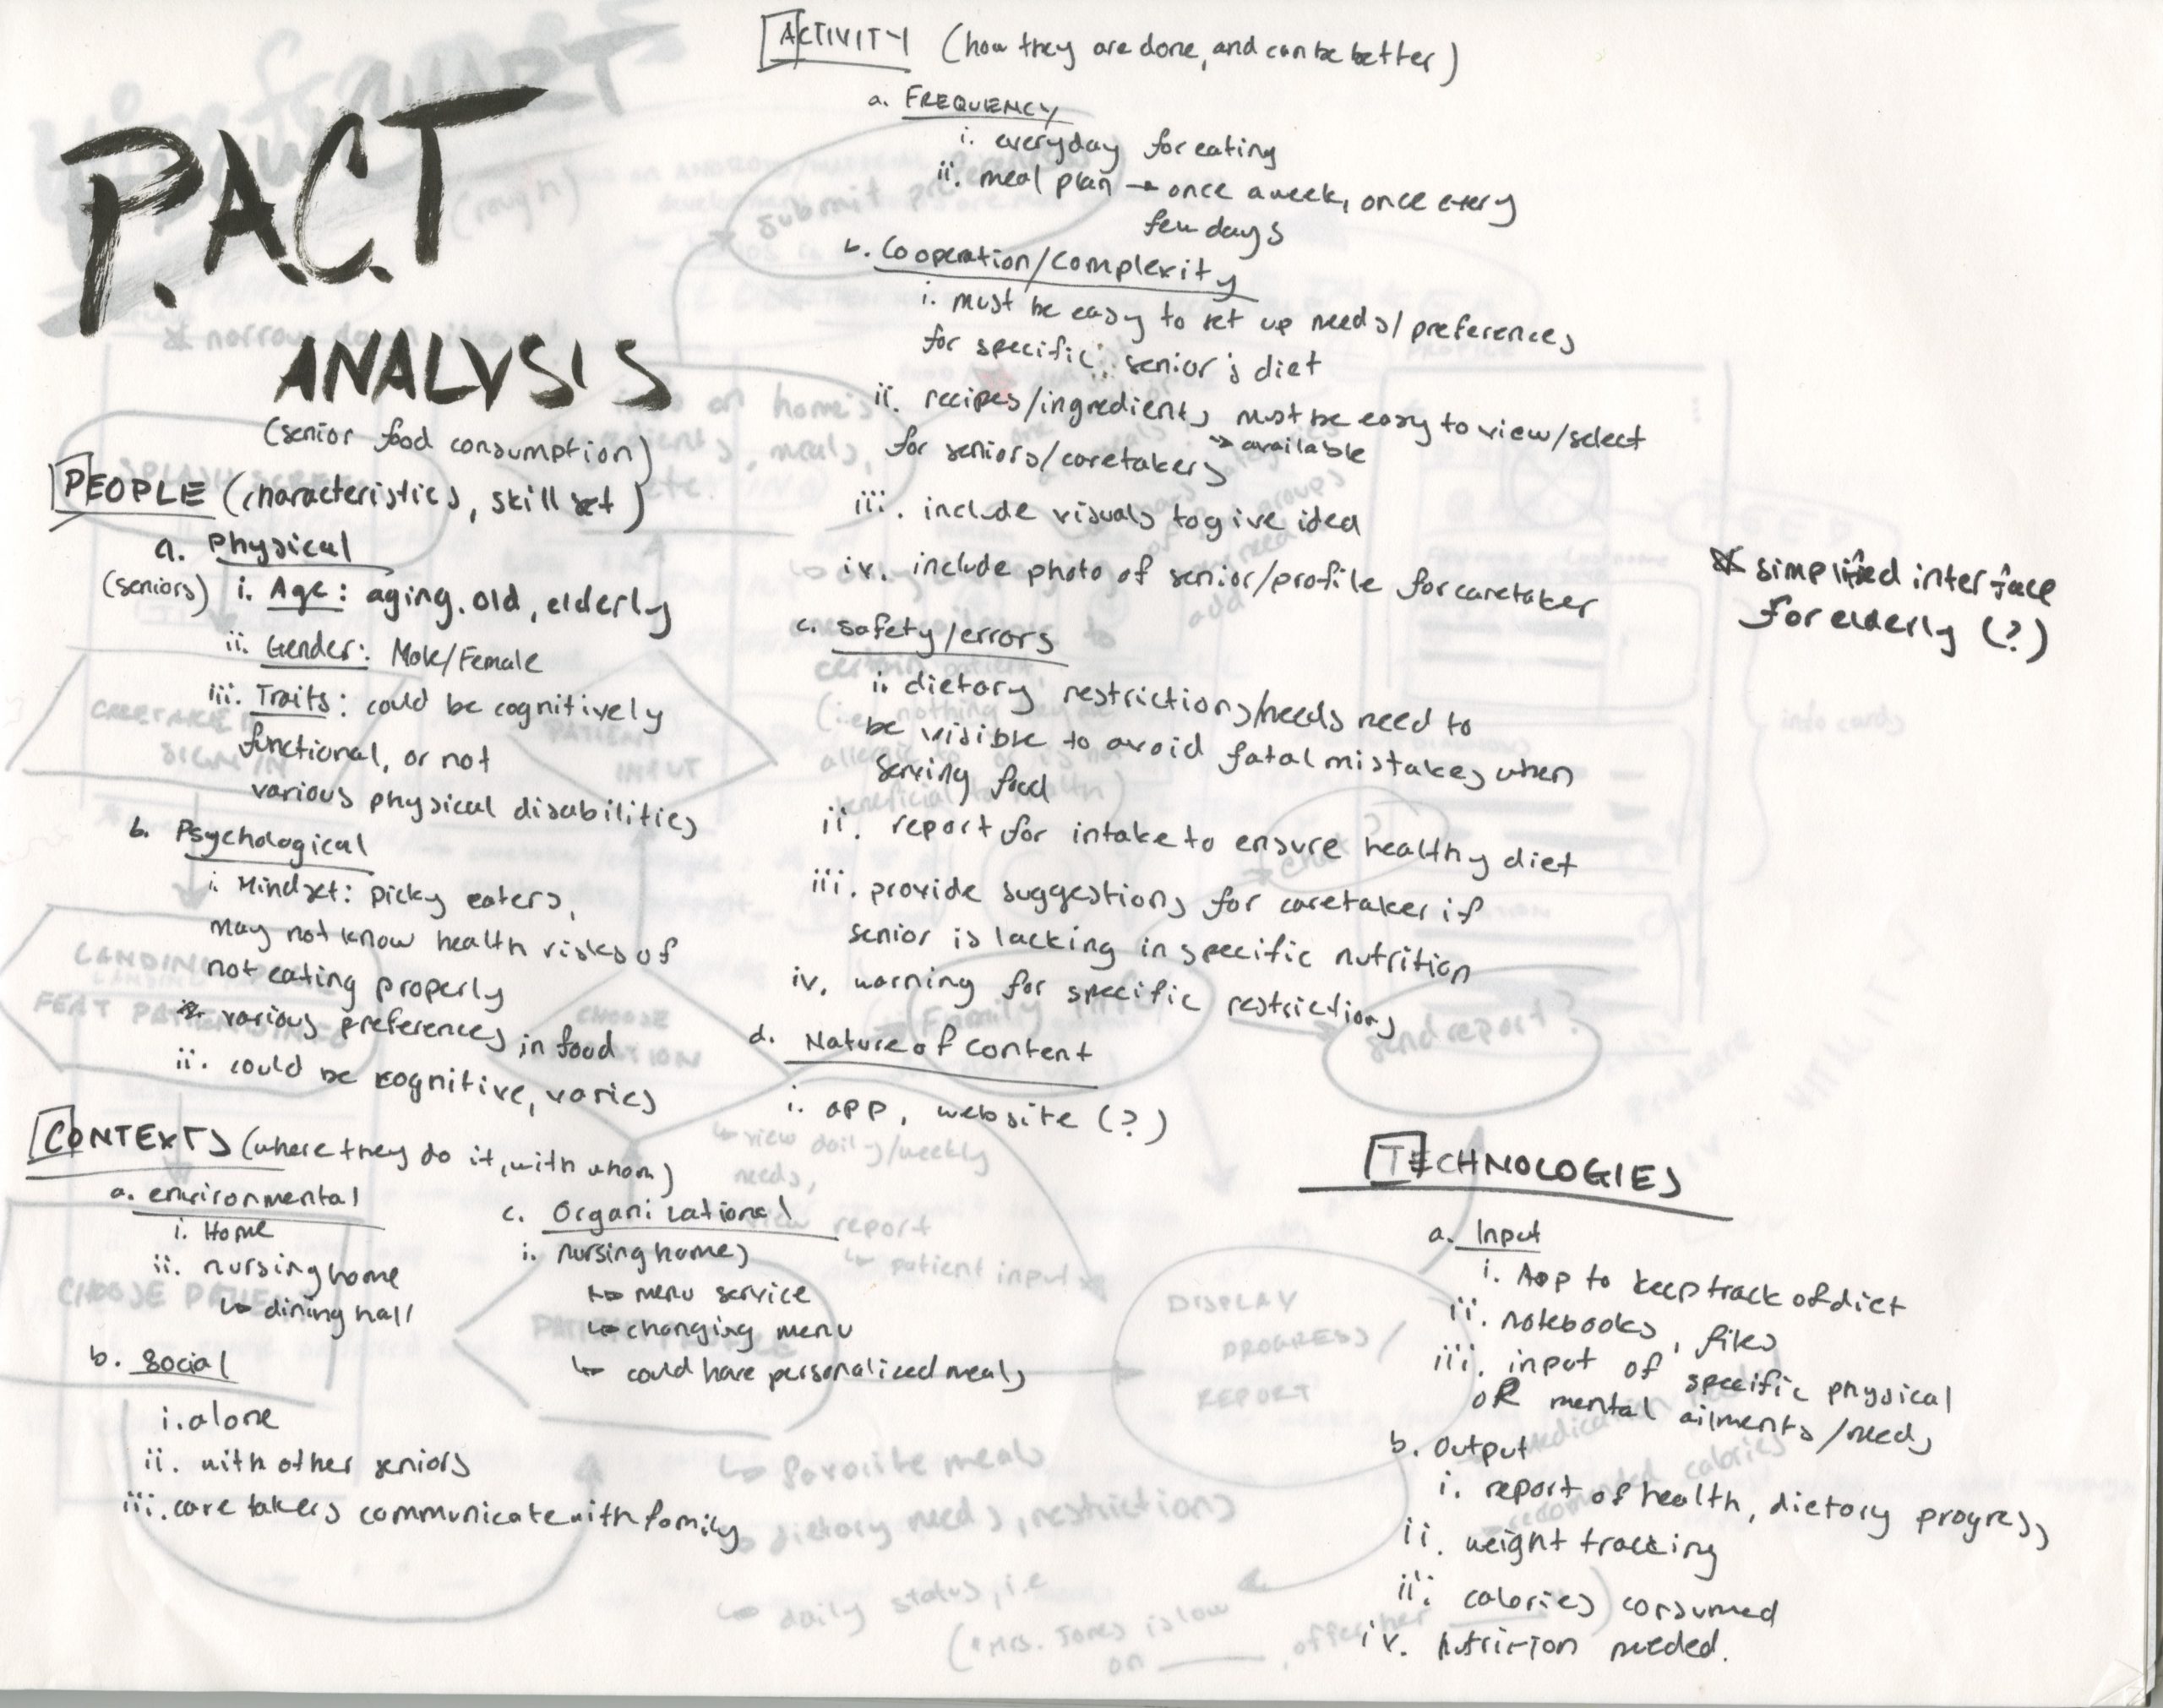 P.A.C.T
ANALYSIS
(senior food consumption)
PEOPLE (characteristics, skill set)
a. Physical
(seniors) i. Age: aging, old, elderly
ii. Gender: Male/Female
iii. Traits: could be cognitively
functional, or not
various physical disabilities
b. Psychological
i. Mindset: picky eaters,
may not know health risks of
not eating properly
various preferences in food
ii. could be cognitive, varies
CONTEXTS (where they do it, with whom)
a. environmental
i. Home
ii. nursing home
↳ dining hall
b. Social
i. alone
ii. with other seniors
iii. care takers communicate with family
c. Organizational
i. nursing homes
↳ menu service
↳ changing menu
↳ could have personalized meals
ACTIVITY (how they are done, and can be better)
a. FREQUENCY
i. everyday for eating
ii. meal plan → once a week, once every
few days
b. Cooperation/Complexity
i. must be easy to set up needs/preferences
for specific senior's diet
ii. recipes/ingredients must be easy to view/select
for seniors/caretakers → available
iii. include visuals to give idea
iv. include photo of senior/profile for caretaker
c. safety/errors
i. dietary restrictions/needs need to
be visible to avoid fatal mistakes when
serving food
ii. report for intake to ensure healthy diet
iii. provide suggestions for caretaker if
senior is lacking in specific nutrition
iv. warning for specific restrictions
d. Nature of content
i. app, website (?)
* simplified interface
for elderly (?)
TECHNOLOGIES
a. Input
i. App to keep track of diet
ii. notebooks, files
iii. input of specific physical
OR mental ailments/needs
b. Output
i. report of health, dietary progress
ii. weight tracking
iii. calories consumed
iv. nutrition needed.
submit
(rough)
* narrow down
home's
meals,
etc.
SIGN IN
PATIENT
INPUT
info cards
CHOOSE
Family
send report?
↳ view daily/weekly
needs,
view report
↳ patient input
DISPLAY
PROGRESS/
REPORT
↳ favorite meals
↳ dietary needs, restrictions
↳ daily status, i.e
("Mrs. Jones is low
on ____, offer her ____")